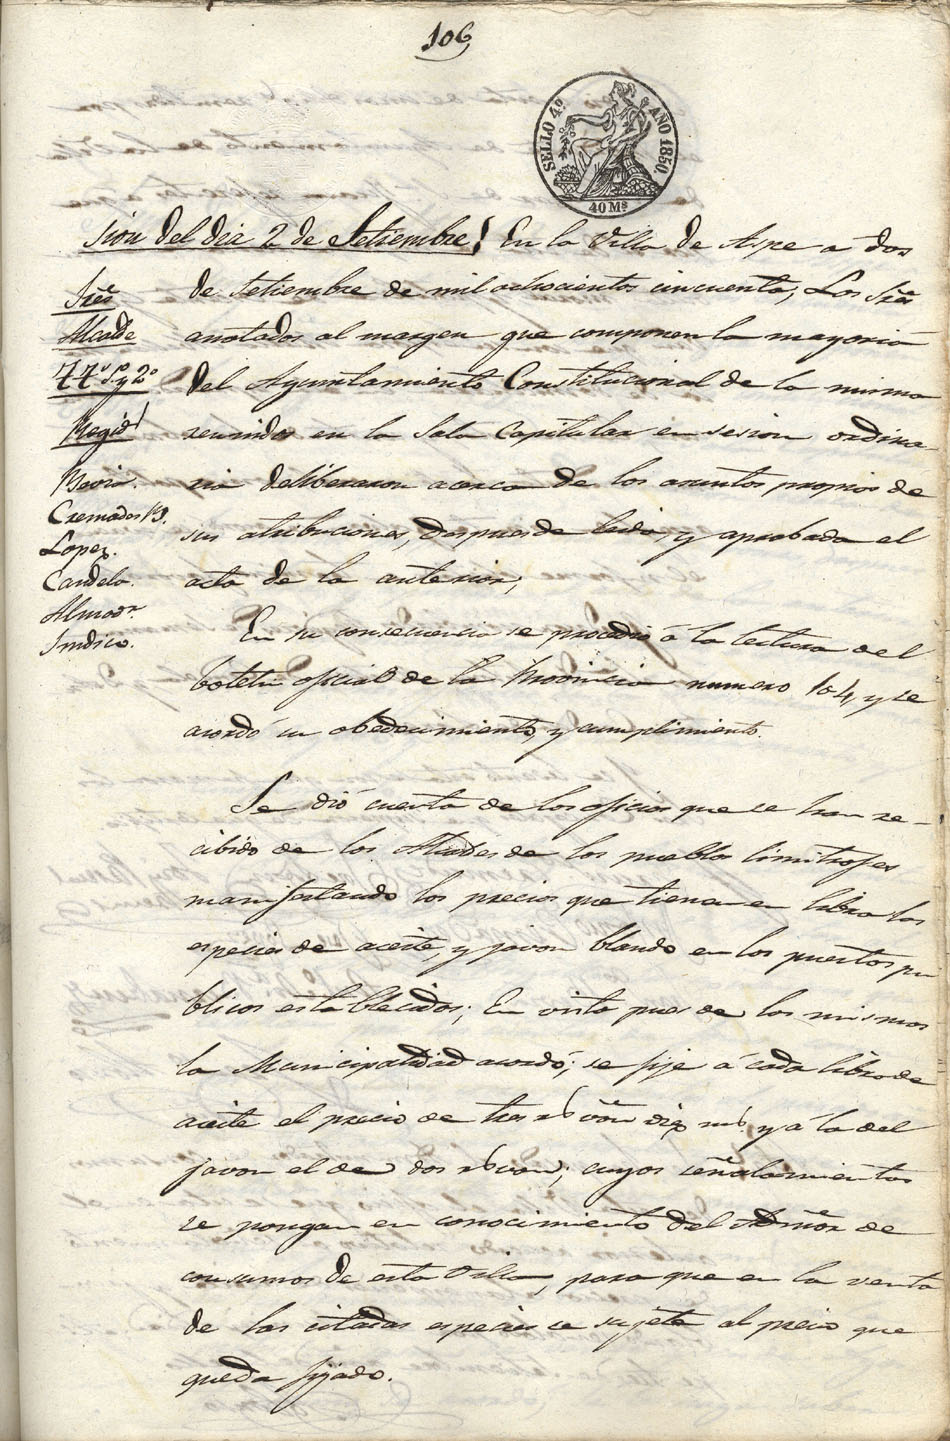 106
SELLO 4º AÑO 1850
40 Ms
sion del dia 2 de Setiembre! En la Villa de Aspe a dos
de Setiembre de mil ochocientos cincuenta; Los Sres
anotados al margen que componen la mayoria
del Ayuntamiento Constitucional de la misma
reunidos en la Sala Capitular en sesion ordina
ria deliberaron acerca de los asuntos propios de
sus atribuciones, despues de leida, y aprobada el
acta de la anterior,
Sres
Alcalde
TTes 1º y 2º
Regid
Bovia.
Cremades
Lopez.
Candela.
Almodr
Sindico.
En su consecuencia se procedió á la lectura del
boletin oficial de la Provincia numero 104, y se
acordó su obedecimiento, y cumplimiento.
Se dió cuenta de los oficios que se han re-
cibido de los Alcaldes de los pueblos limitrofes
manifestando los precios que tienen en libra las
especies de aceite, y javon blando en los puestos pu
blicos establecidos; En vista pues de los mismos
la Municipalidad acordó; se fije á cada libra de
aceite el precio de tres rs von diez ms. y á la del
javon el de dos rs von; cuyos señalamientos
se pongan en conocimiento del Admõr de
consumos de esta Villa, para que en la venta
de las citadas especies se sujete al precio que
queda fijado.